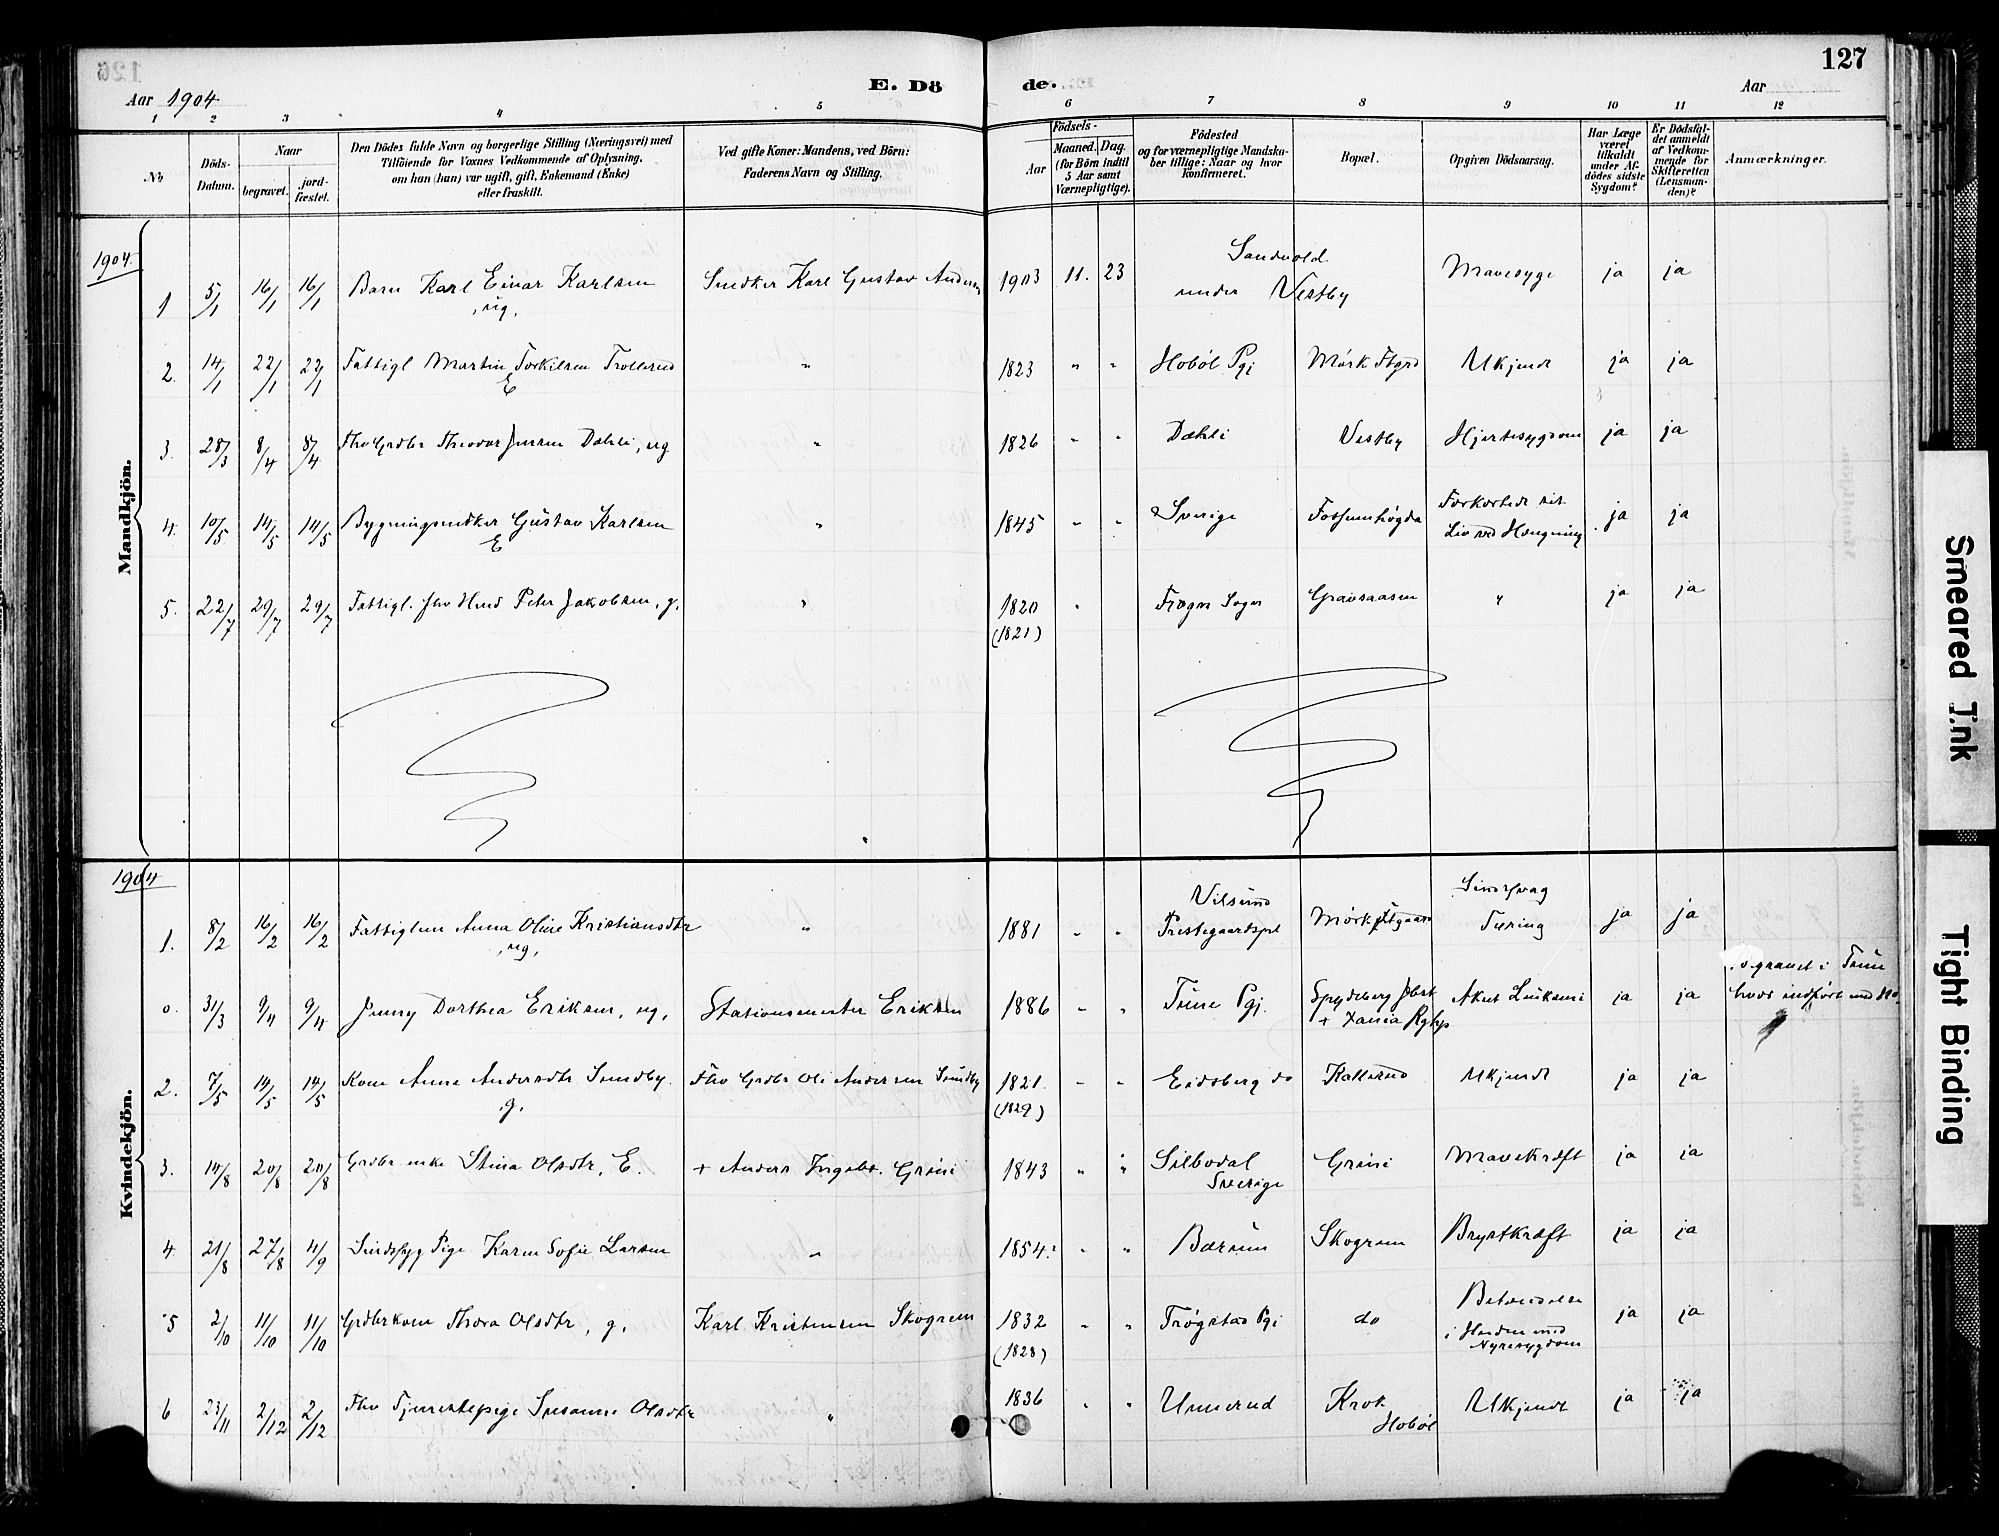 127
Aar 1904
E. Dö
de.
Aar
1 2 3 4 5 6 7 8 9 10 11 12
No.
Döds-
Datum.
Naar
begravet.
jord-
fæstet.
Den Dödes fulde Navn og borgerlige Stilling (Næringsvei) med
Tilföiende for Voxnes Vedkommende af Oplysning,
om han (hun) var ugift, gift, Enkemand (Enke)
eller fraskilt.
Ved gifte Koner: Mandens, ved Börn:
Faderens Navn og Stilling.
Födsels-
Aar
Maaned. Dag.
(for Börn indtil
5 Aar samt
Værnepligtige).
Födested
og for værnepligtige Mandska-
ber tillige: Naar og hvor
konfirmeret.
Bopæl.
Opgiven Dödsaarsag.
Har Læge
været
tilkaldt
under Af-
dödes sidste
Sygdom?
Er Dödsfal-
det anmeldt
af Vedkom-
mende for
Skifteretten
(Lensman-
den)?
Anmærkninger.
Mandkjön.
1904.
1 5/1 16/1 16/1 Barn Karl Einar Karlsen Snedker Karl Gustav Anders 1903 11. 23 Sandvold Mavesyge ja ja
ug. under Vestby
2. 14/1 22/1 22/1 Fattigl Martin Torkilsen Trollerud " 1823 " " Hoböl Pgj Mörk Ftgrd Ukjendt ja ja
E
3. 28/3 8/4 8/4 Fhv Grdbr Theodor Jensen Dæhli, ug " 1826 " " Dæhli Vestby Hjertesygdom ja ja
4. 10/5 14/5 14/5 Bygningssnedker Gustav Karlsen " 1845 " " Sverige Fossumhögda Forkortede sit ja ja
E Liv ved Hængning
5. 22/7 29/7 29/7 Fattigl. fhv Hmd Peter Jakobsen, g. " 1820 " Frogn Sogn Gravsaasen " ja ja
(1821)
Kvindekjön.
1904
1. 8/2 16/2 16/2 Fattiglem Anna Oline Kristiansdtr " 1881 " " Prestegaardspl Mörk Ftgaard Tæring ja ja
Sindssvag
ug.
0. 31/3 9/4 9/4 Jenny Dorthea Eriksen, ug. Stationsmester Eriksen 1886 " " Tune Pgj. Spydeberg Jbst Akut Leukemi ja ja
+ Xania Rghsp
begravet i Tune
hvor indfört med No
2. 7/5 14/5 14/5 Kone Anne Andersdtr Sundby. Fhv Grdbr Ole Andersen Sundby 1821. " " Eidsberg do Kallerud Ukjendt ja ja
g. (1829)
3. 14/8 20/8 20/8 Grdbr enke Stina Olsdtr, E. + Anders Ingebr. Grini 1843 " " Silbodal Grini Mavekræft ja ja
Sverige
4 21/8 27/8 4/9 Sindssyg Pige Karen Sofie Larsen " 1854? " " Bærum Skogrem Brystkræft ja ja
5 2/10 11/10 11/10 Grdbrkone Thora Olsdtr, g. Karl Kristensen Skogrem 1832 " " Trögstad Pgj do Betændelse ja ja
(1828) i Huden med
Nyresygdom
6 23/11 2/12 2/12 Fhv Tjenestepige Susanne Olsdtr " 1836 " " Unnerud Krok Ukjendt ja ja
Hoböl
Smeared Ink
Tight Binding